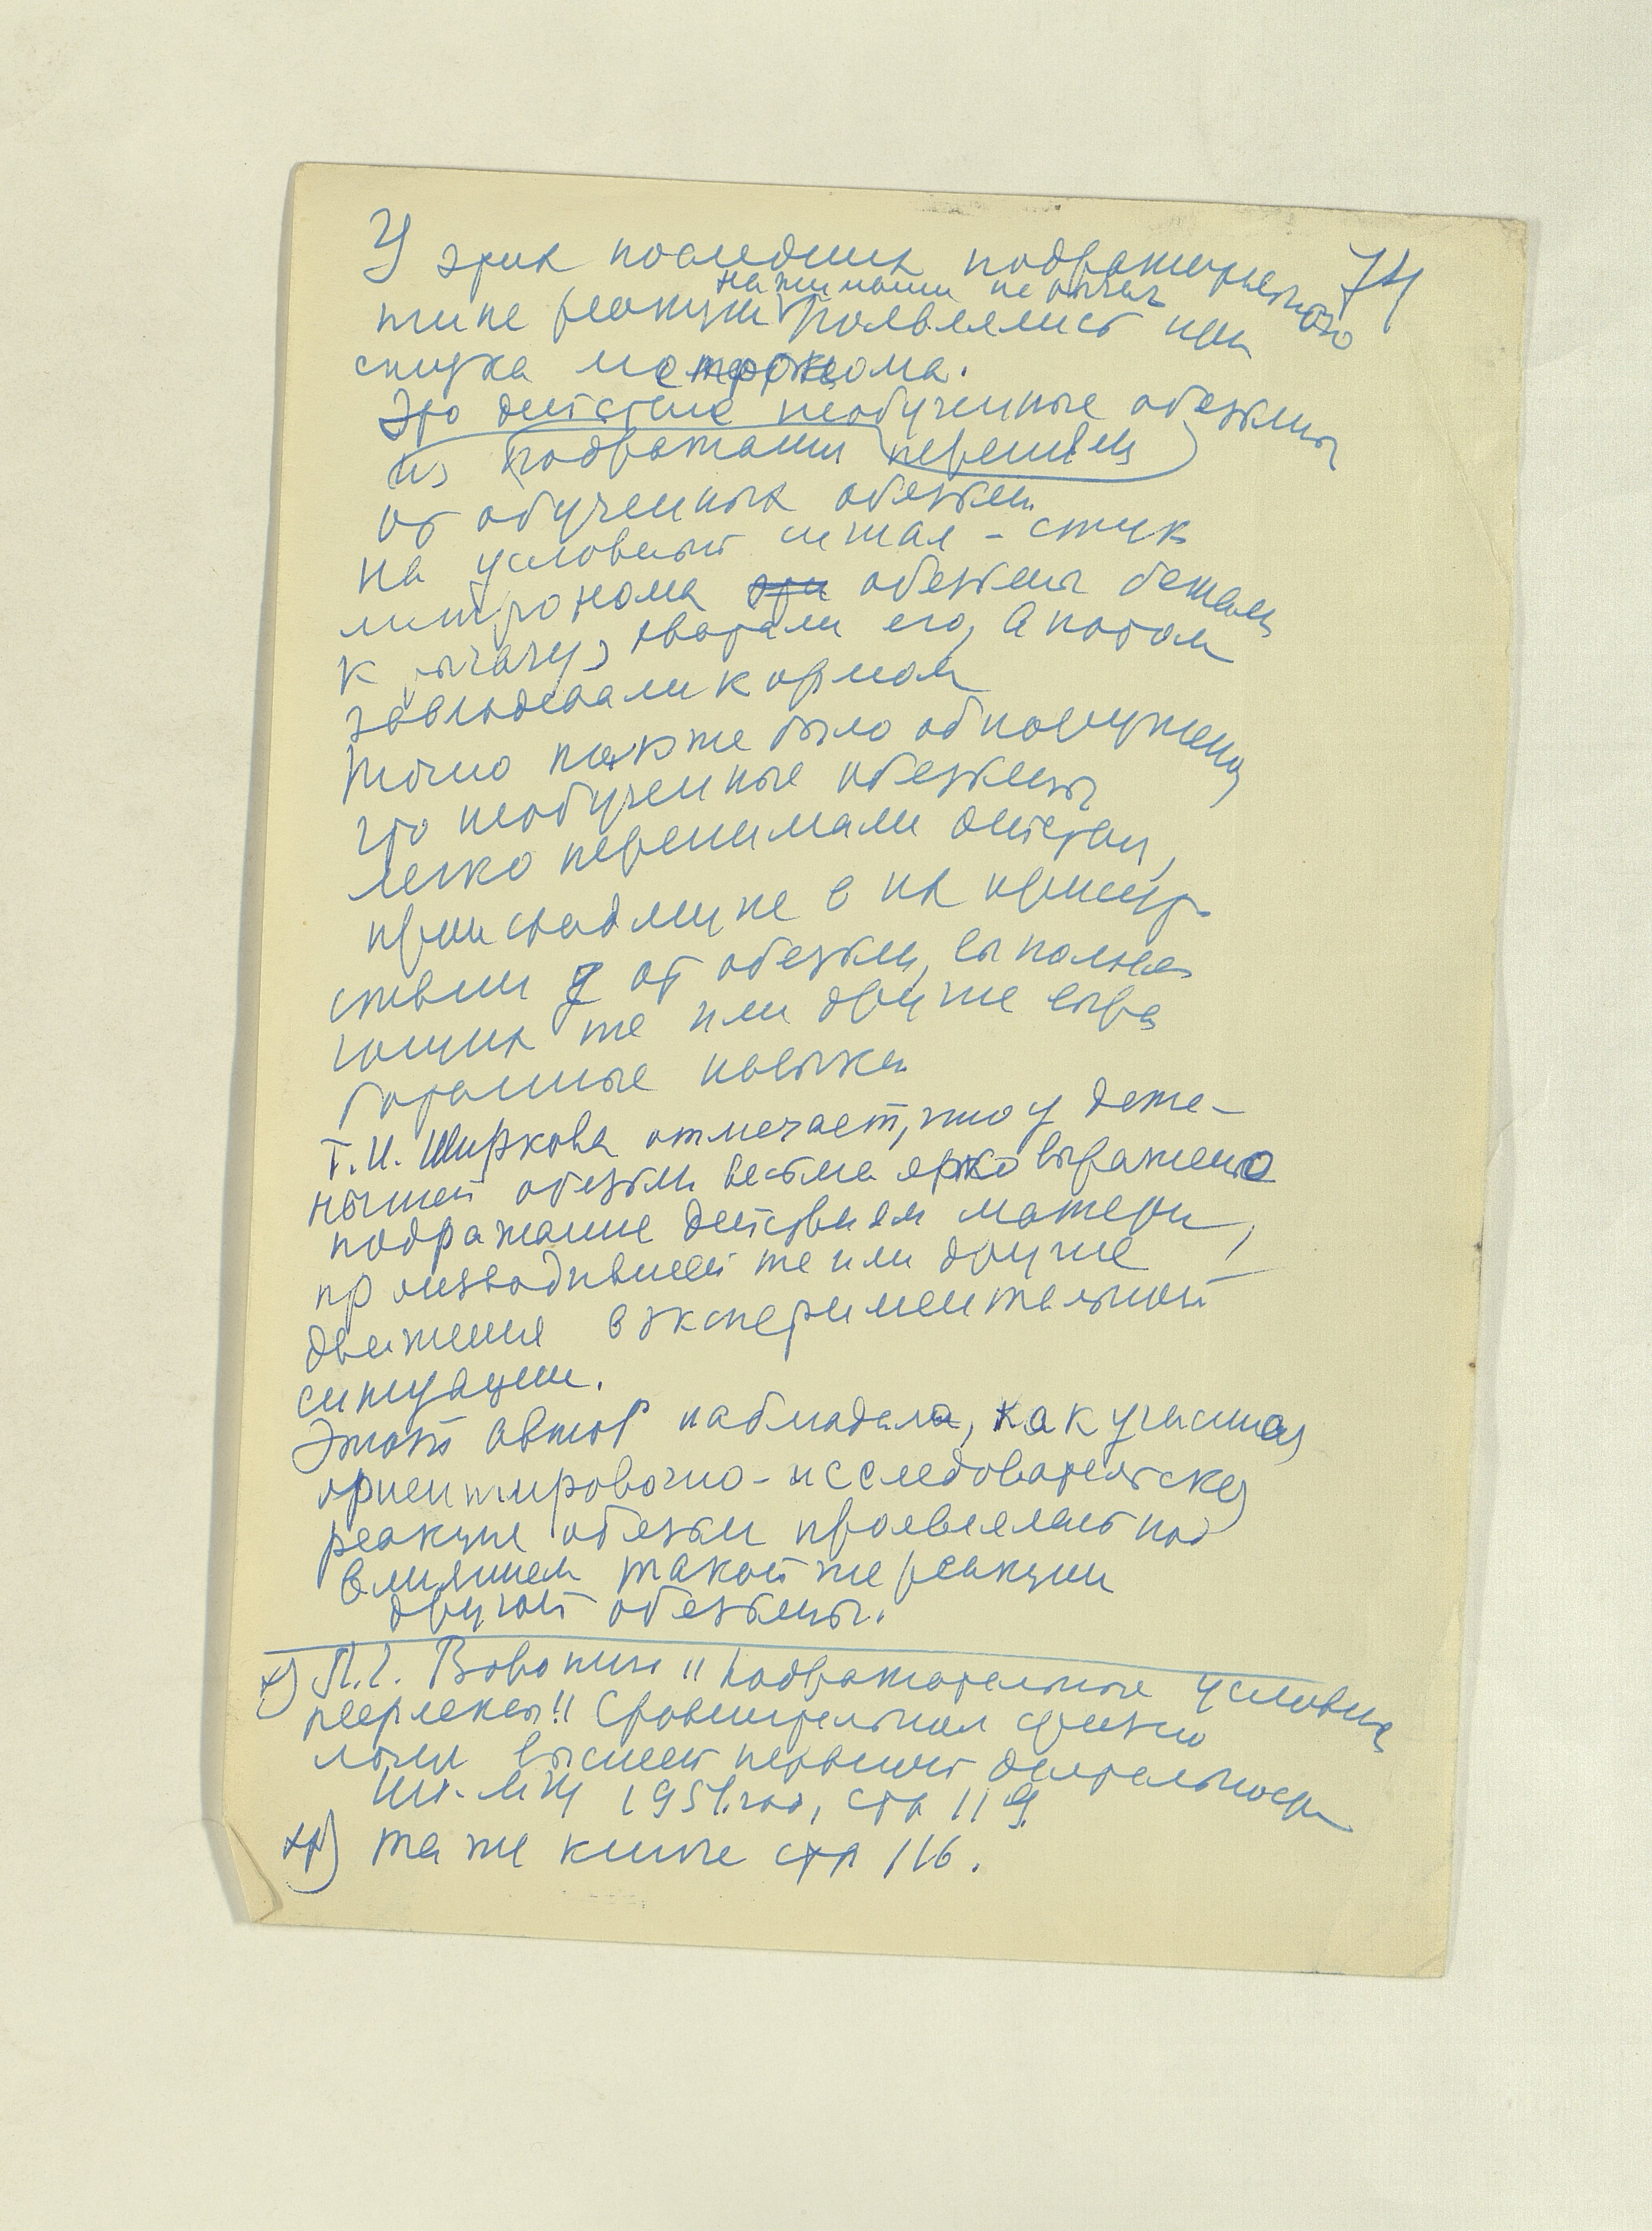 74
У этих последних подражательного
нажимания на рычаг
типа реакции появлялись при
стука метронома.
Это действие необученные обезьяны
из подражания переняли
от обученных обезьян.
На условный сигнал – стук
метронома эти обезьяны бежали
к рычагу, хватали его, а потом
завладевали кормом
Точно также было обнаружено
что необученные обезьяны
легко перенимали действия,
происходящие в их присут-
ствии от обезьян, выполняв
ющих те или другие выра
ботанные навыки
Г.И. Ширкова отмечает, что у дете-
нышей обезьян весьма ярко выражено
подражание действиям матери,
производившей те или другие
движения в экспериментальной
ситуации.
Этот автор наблюдала, как угасшая
ориентировочно-исследовательская
реакция обезьян проявлялась под
влиянием такой же реакции
другой обезьяны.
х) Л.Г. Воронин "Подражательные условные
рефлексы" Сравнительная физио
логия высшей нервной деятельности
1951. год, стр 119.
хх) та же книга стр 116.